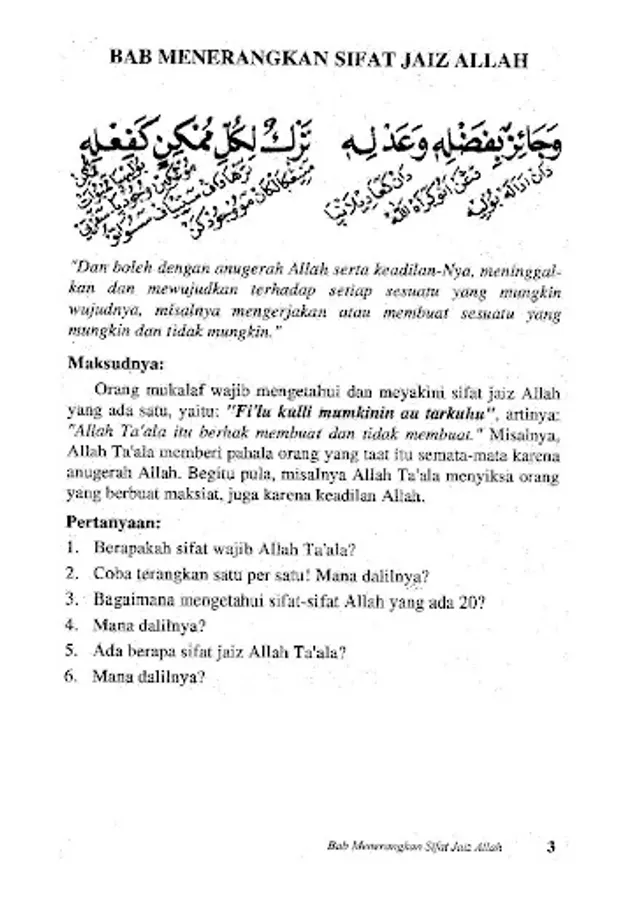 BAB MENERANGKAN SIFAT JAIZ ALLAH
وَجَائِزٌ بِفَضْلِهِ وَعَدْلِهِ تَرْكٌ لِكُلِّ مُمْكِنٍ كَفِعْلِهِ
"Dan boleh dengan anugerah Allah serta keadilan-Nya, meninggal-
kan dan mewujudkan terhadap setiap sesuatu yang mungkin
wujudnya, misalnya mengerjakan atau membuat sesuatu yang
mungkin dan tidak mungkin."
Maksudnya:
Orang mukalaf wajib mengetahui dan meyakini sifat jaiz Allah
yang ada satu, yaitu: "Fi'lu kulli mumkinin au tarkuhu", artinya:
"Allah Ta'ala itu berhak membuat dan tidak membuat." Misalnya,
Allah Ta'ala memberi pahala orang yang taat itu semata-mata karena
anugerah Allah. Begitu pula, misalnya Allah Ta'ala menyiksa orang
yang berbuat maksiat, juga karena keadilan Allah.
Pertanyaan:
1. Berapakah sifat wajib Allah Ta'ala?
2. Coba terangkan satu per satu! Mana dalilnya?
3. Bagaimana mengetahui sifat-sifat Allah yang ada 20?
4. Mana dalilnya?
5. Ada berapa sifat jaiz Allah Ta'ala?
6. Mana dalilnya?
Bab Menerangkan Sifat Jaiz Allah 3